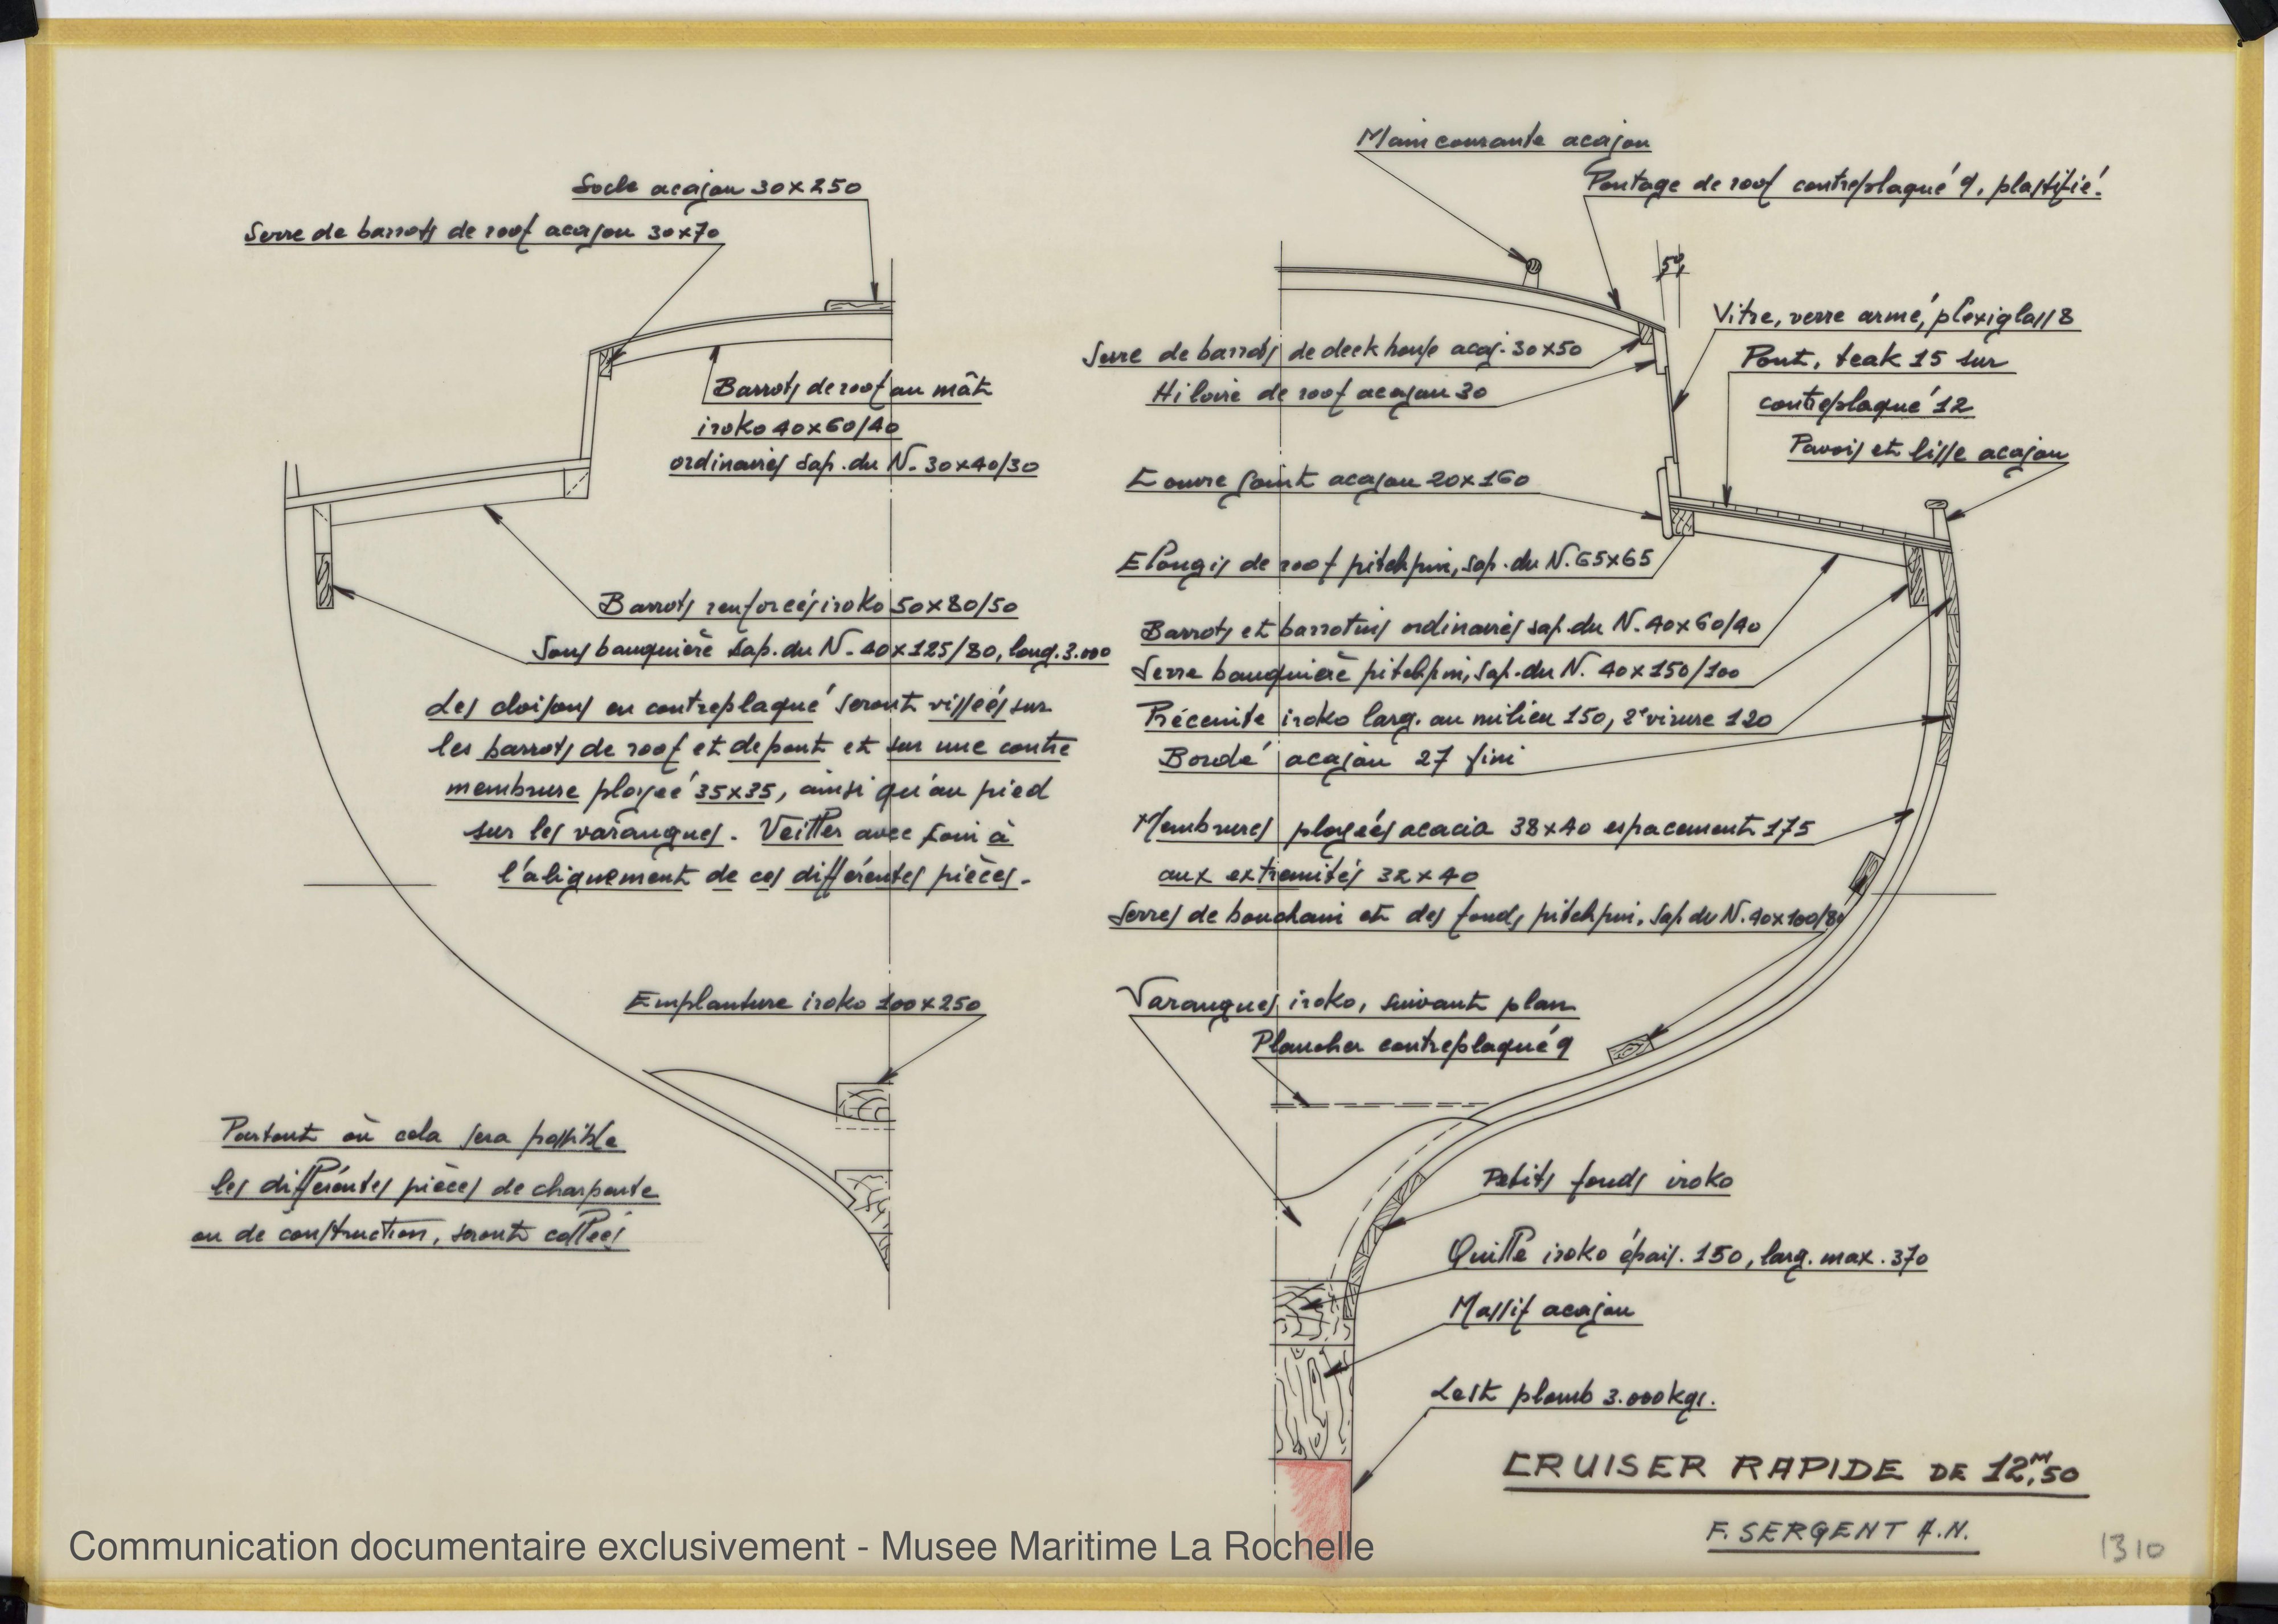 Socle acajou 30x250
Serre de barrots de roof acajou 30x70
Barrots de roof au mât
iroko 40x60/40
ordinaires sap. du N. 30x40/30
Barrots renforcés iroko 50x80/50
Sous bauquière sap. du N. 40x125/80, long. 3.000
Les cloisons en contreplaqué seront vissées sur
les barrots de roof et de pont et sur une contre
membrure ployée 35x35, ainsi qu'au pied
sur les varangues. Veiller avec soin à
l'alignement de ces différentes pièces.
Emplanture iroko 100x250
Partout où cela sera possible
les différentes pièces de charpente
ou de construction, seront collées
Main courante acajou
Pontage de roof contreplaqué 9, plastifié.
5°
Vitre, verre armé, plexiglass 8
Serre de barrots de deck house acaj. 30x50
Pont, teak 15 sur
contreplaqué 12
Hiloire de roof acajou 30
Pavois et lisse acajou
Couvre joint acajou 20x160
Elongis de roof pitchpin, sap. du N. 65x65
Barrots et barrotins ordinaires sap. du N. 40x60/40
Serre bauquière pitchpin, sap. du N. 40x150/100
Préceinte iroko larg. au milieu 150, 2e virure 120
Bordé acajou 27 fini
Membrures ployées acacia 38x40 espacement 175
aux extremités 32x40
Serres de bouchain et des fonds pitchpin, sap du N. 40x100/80
Varangues iroko, suivant plan
Plancher contreplaqué 9
Petits fonds iroko
Quille iroko épais. 150, larg. max. 370
Massif acajou
Lest plomb 3.000kgs.
CRUISER RAPIDE DE 12M,50
F. SERGENT A.N.
1310
Communication documentaire exclusivement - Musee Maritime La Rochelle